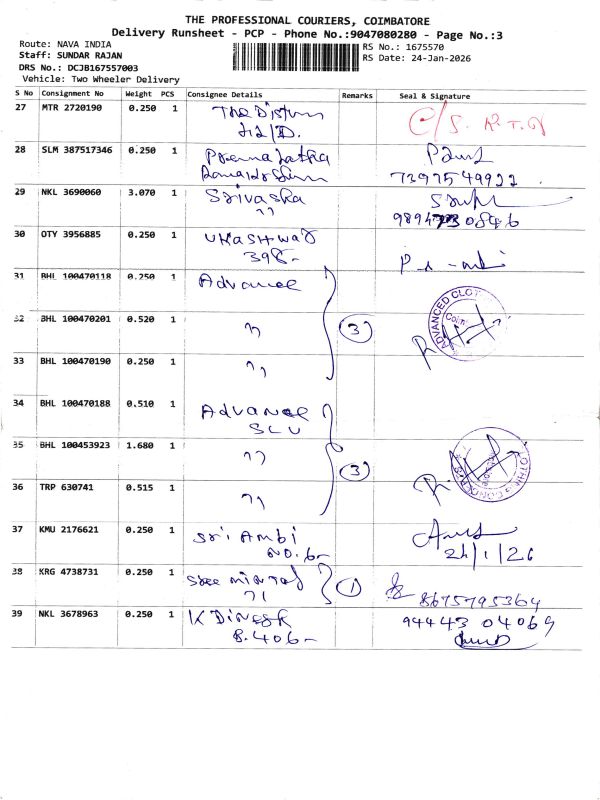 THE PROFESSIONAL COURIERS, COIMBATORE
Delivery Runsheet - PCP - Phone No.:9047080280 - Page No.:3
Route: NAVA INDIA
Staff: SUNDAR RAJAN
DRS No.: DCJB167557003
Vehicle: Two Wheeler Delivery
RS No.: 1675570
RS Date: 24-Jan-2026
S No Consignment No Weight PCS Consignee Details Remarks Seal & Signature
27 MTR 2720190 0.250 1 The
28 SLM 387517346 0.250 1 Prema Latha
7397549922
29 NKL 3690060 3.070 1 Srivaska
30 OTY 3956885 0.250 1
398-
31 BHL 100470118 0.250 1 Advance
32 BHL 100470201 0.520 1 " (3) ADVANCED CLOT
33 BHL 100470190 0.250 1 "
34 BHL 100470188 0.510 1 Advance
SLV
35 BHL 100453923 1.680 1 " (3)
36 TRP 630741 0.515 1 "
37 KMU 2176621 0.250 1 Sri Ambi
NO.6-
24/1/26
38 KRG 4738731 0.250 1 Sree (1) 8675795364
39 NKL 3678963 0.250 1 K Dinesh 94443 04069
B.406-